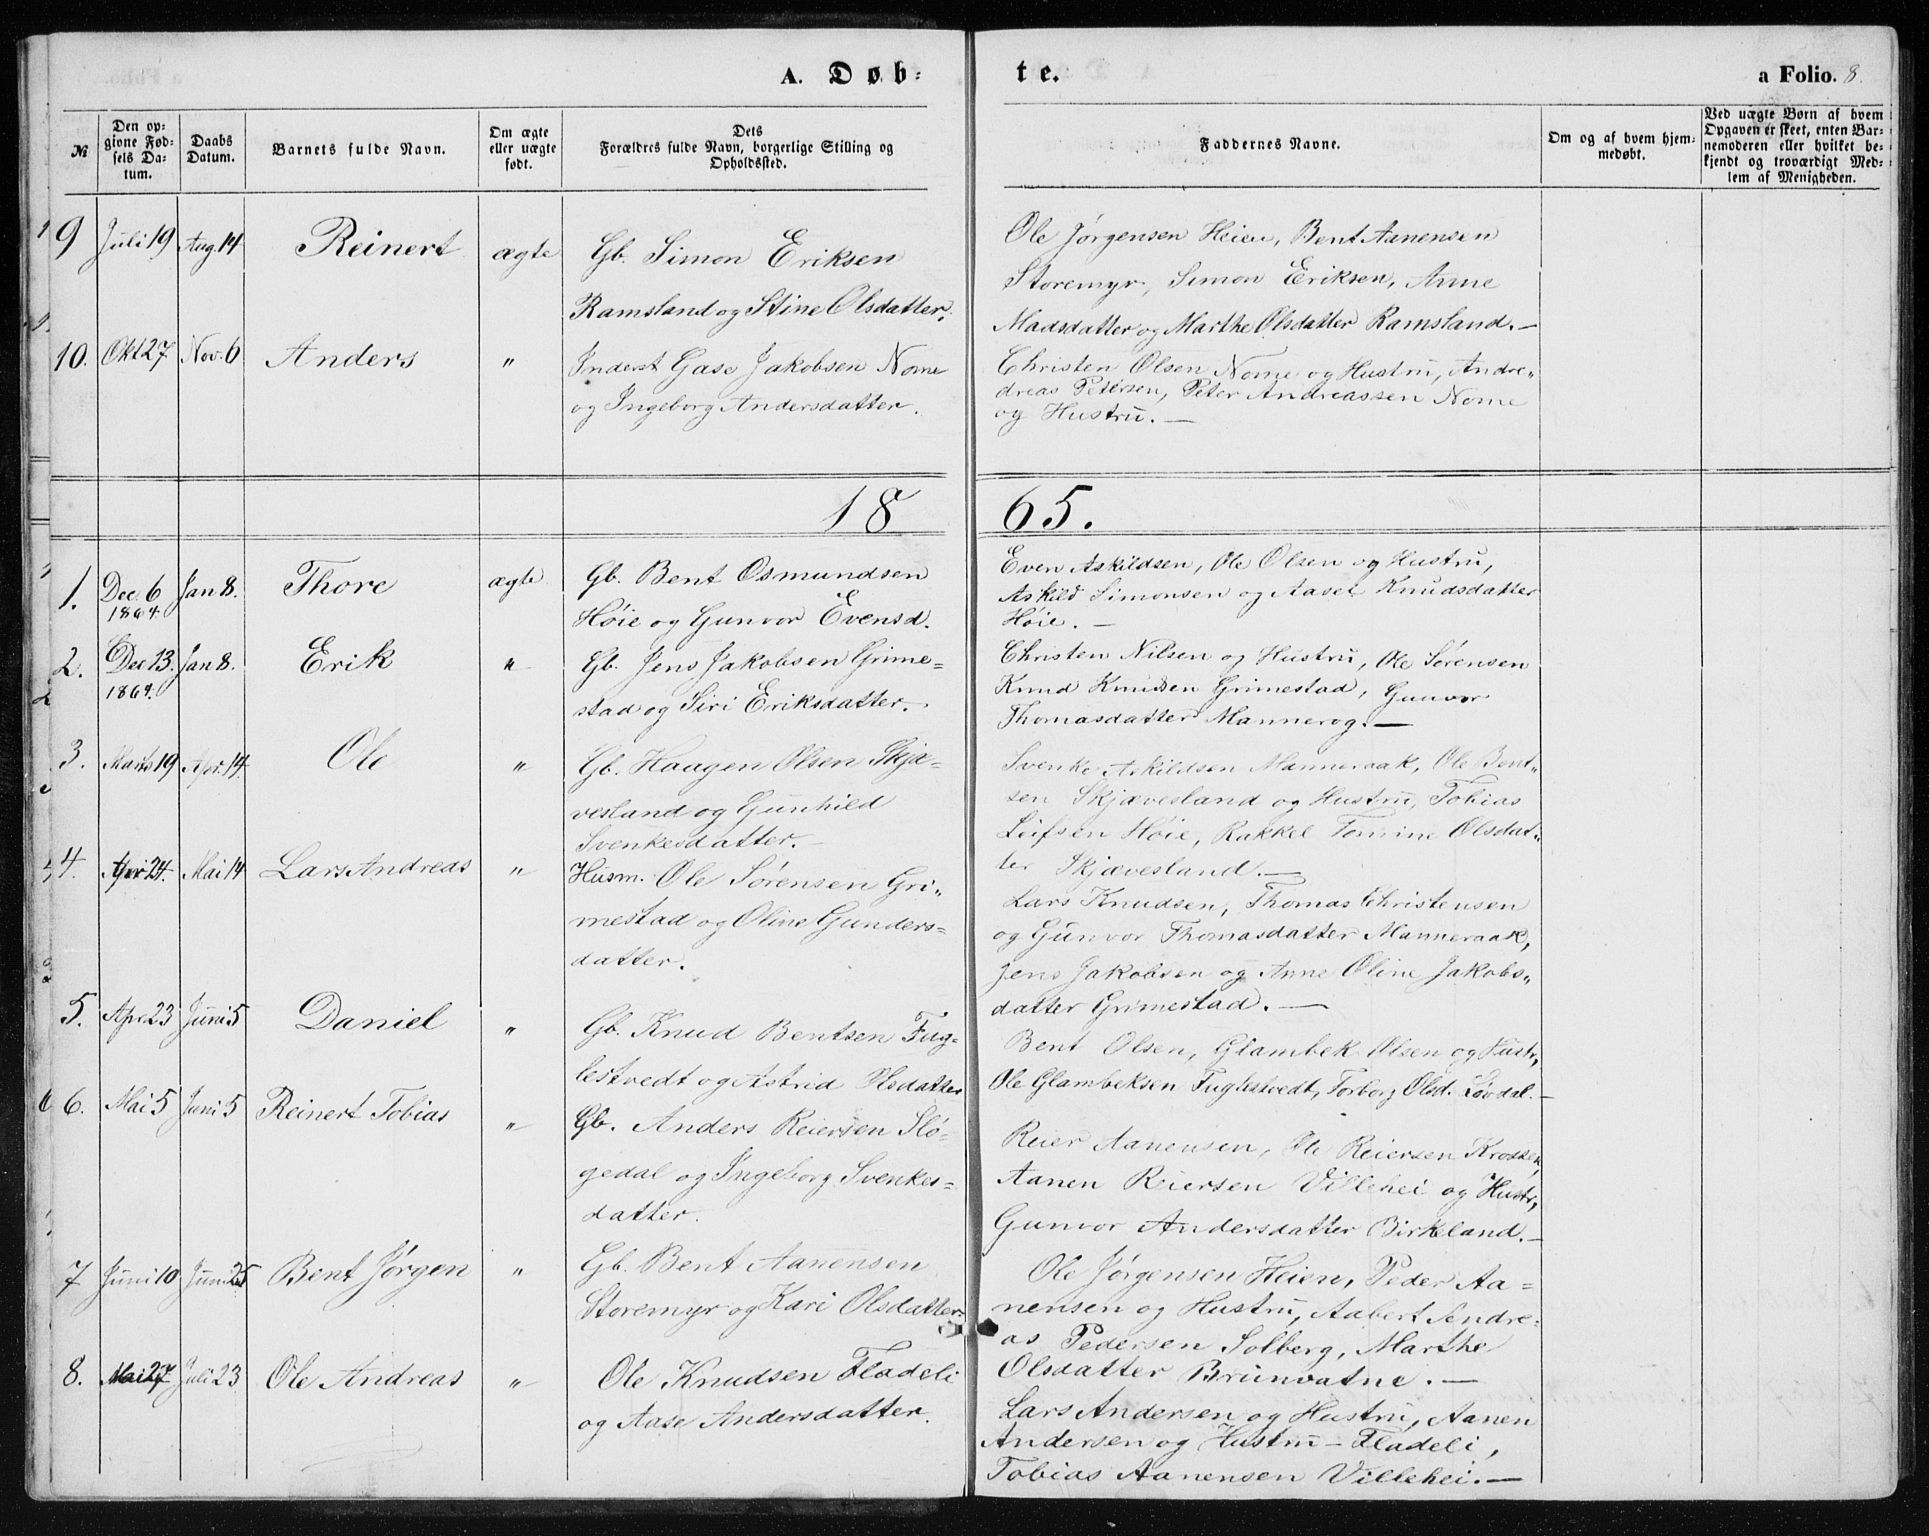 A. Døb=
te.
a Folio. 8.
№
Den op=
givne Fød=
sels Da=
tum.
Daabs
Datum.
Barnets fulde Navn.
Om ægte
eller uægte
født.
Dets
Forældres fulde Navn, borgerlige Stilling og
Opholdssted.
Faddernes Navne.
Om og af hvem hjem=
medøbt.
Ved uægte Børn af hvem
Opgaven er skeet, enten Bar=
nemoderen eller hvilket be=
kjendt og troværdigt Med=
lem af Menigheden.
9 Juli 19 Aug. 14 Reinert ægte Gb. Simon Eriksen
Ramsland og Stine Olsdatter.
Ole Jørgensen Heien, Bent Aanensen
Storemyr, Simon Eriksen, Anne
Madsdatter og Marthe Olsdatter Ramsland. —
10. Okt 27 Nov. 6 Anders " Inderst Gase Jakobsen Nome
og Ingeborg Andersdatter.
Christen Olsen Nome og Hustru, Andre„
dreas Petersen, Peter Andreassen Nome
og Hustru. —
18
65.
1. Dec. 6 Jan 8. Thore ægte Gb. Bent Osmundsen
1864.
Høie og Gunvor Evensd.
Even Askildsen, Ole Olsen og Hustru,
Askild Simonsen og Aaset Knudsdatter
Høie. —
2. Dec 13. Jan 8. Erik " Gb. Jens Jakobsen Grime=
1864.
stad og Siri Eriksdatter.
Christen Nilsen og Hustru, Ole Sørensen
Knud Knudsen Grimestad, Gunvor
Thomasdatter Mannerog. —
3. Marts 19 Apr. 14 Ole " Gb. Haagen Olsen Skjæ=
vesland og Gunhild
Svenkesdatter. —
Svenke Askildsen Manneraak, Ole Bent„
sen Skjævesland og Hustru, Tobias
Leifsen Høie, Rakkel Tomine Olsdat„
ter Skjævesland. —
4. Apr 24. Mai 14 Lars Andreas " Husm. Ole Sørensen Gri„
mestad og Oline Gunders=
datter.
Lars Knudsen, Thomas Christensen
og Gunvor Thomasdatter Manneraak,
Jens Jakobsen og Anne Oline Jakobs„
datter Grimestad. —
5. Apr 23 Juni 5 Daniel " Gb. Knud Bentsen Fug=
lestvedt og Astrid Olsdatter
Bent Olsen, Glambek Olsen og Hustr,
Ole Glambeksen Fuglestvedt, Torborg Olsd. Løvdal. —
6. Mai 5 Juni 5 Reinert Tobias " Gb. Anders Reiersen Slø=
gedal og Ingeborg Svenkes=
datter.
Reier Aanensen, Ole Reiersen Krossen,
Aanen Reiersen Villehei og Hustr,
Gunvor Andersdatter Birkeland. —
7 Juni 10 Juni 25 Bent Jørgen " Gb. Bent Aanensen
Storemyr og Kari Olsdatter.
Ole Jørgensen Heien, Peder Aa=
nensen og Hustru, Aabert Andre=
as Pedersen Solberg, Marthe
Olsdatter Brunvatne. —
8. Mai 27 Juli 23 Ole Andreas " Ole Knudsen Fladeli
og Aase Andersdatter.
Lars Andersen og Hustru, Aanen
Andersen og Hustru - Fladeli,
Tobias Aanensen Villehei. —